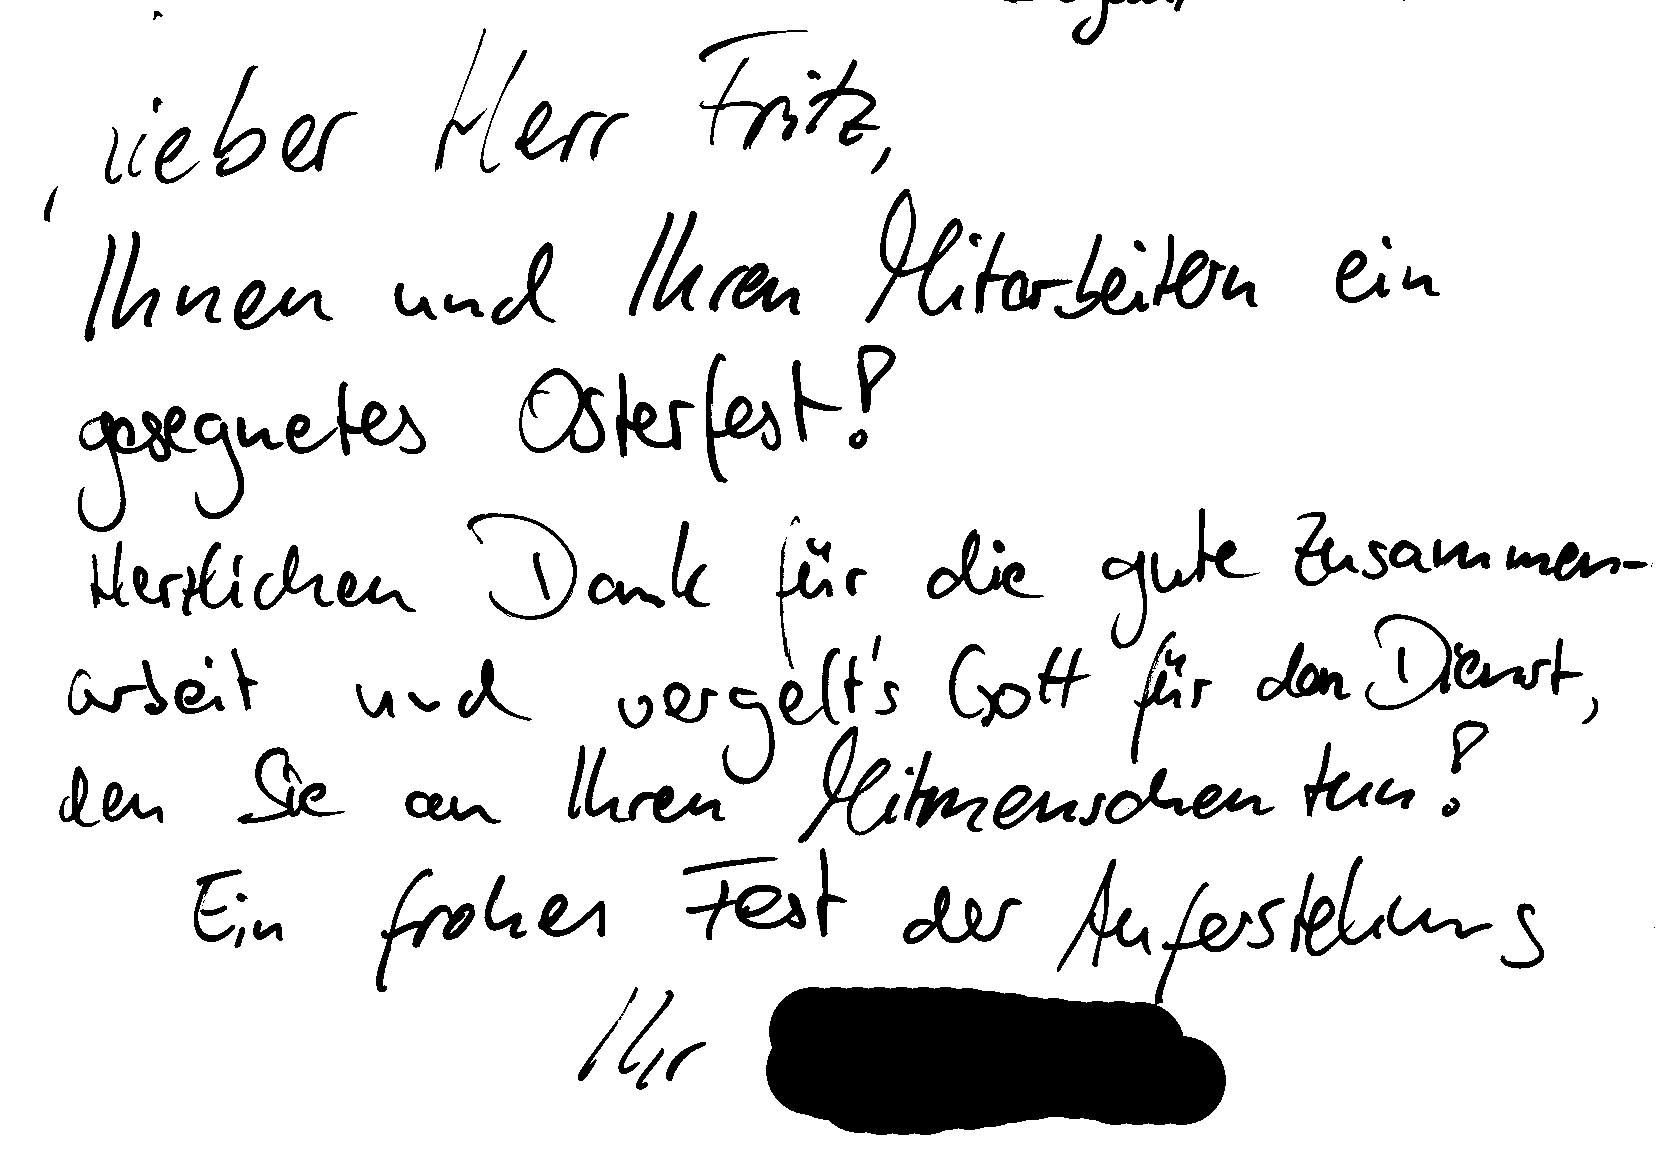 lieber Herr Fritz,
Ihnen und Ihren Mitarbeitern ein
gesegnetes Osterfest!
Herzlichen Dank für die gute Zusammen-
arbeit und vergelt's Gott für den Dienst,
den Sie an Ihren Mitmenschen tun!
Ein frohes Fest der Auferstehung
Ihr